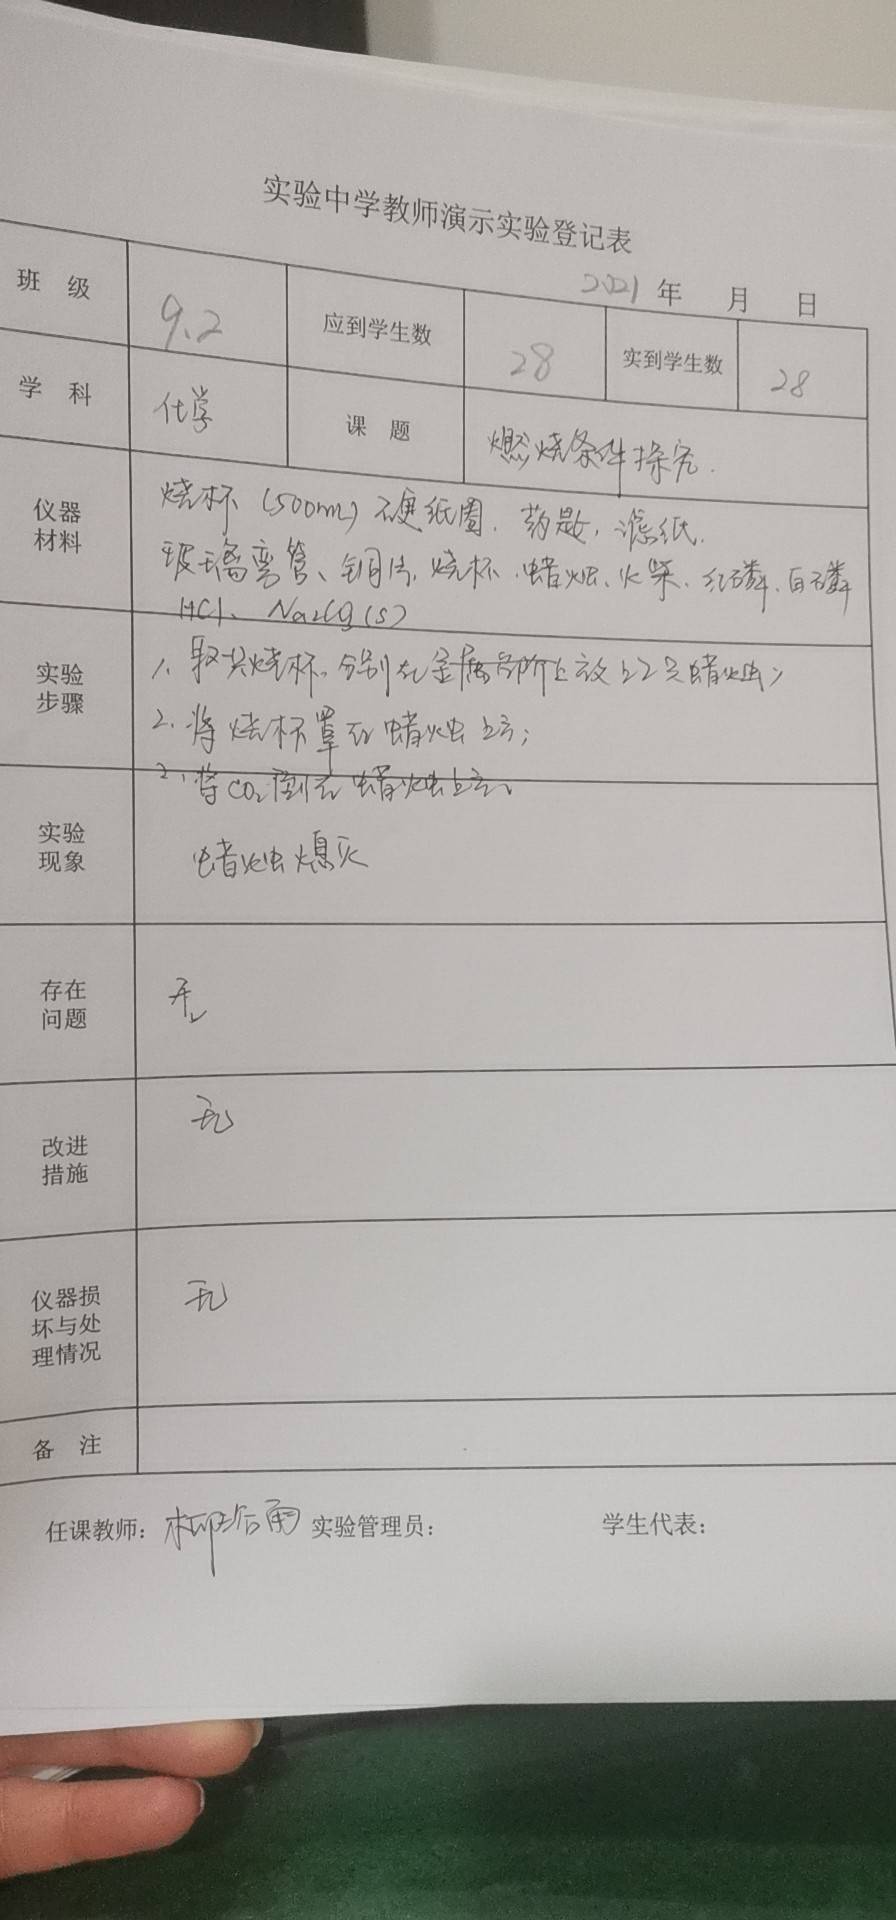 实验中学教师演示实验登记表
2021 年 月 日
班 级 9.2 应到学生数 28 实到学生数 28
学 科 化学 课 题 燃烧条件探究.
仪器
材料
烧杯 (500ml) 硬纸圈. 药匙, 滤纸.
玻璃弯管、铜片, 烧杯. 蜡烛、火柴. 红磷. 白磷
HCl、 Na2CO3(s)
实验
步骤
1. 取 烧杯. 分别在金属 上放 蜡烛;
2. 将烧杯罩在蜡烛上方;
2. 将CO2倒在蜡烛上方.
实验
现象
蜡烛熄灭
存在
问题
无
改进
措施
无
仪器损
坏与处
理情况
无
备 注
任课教师: 柳 雨 实验管理员: 学生代表: